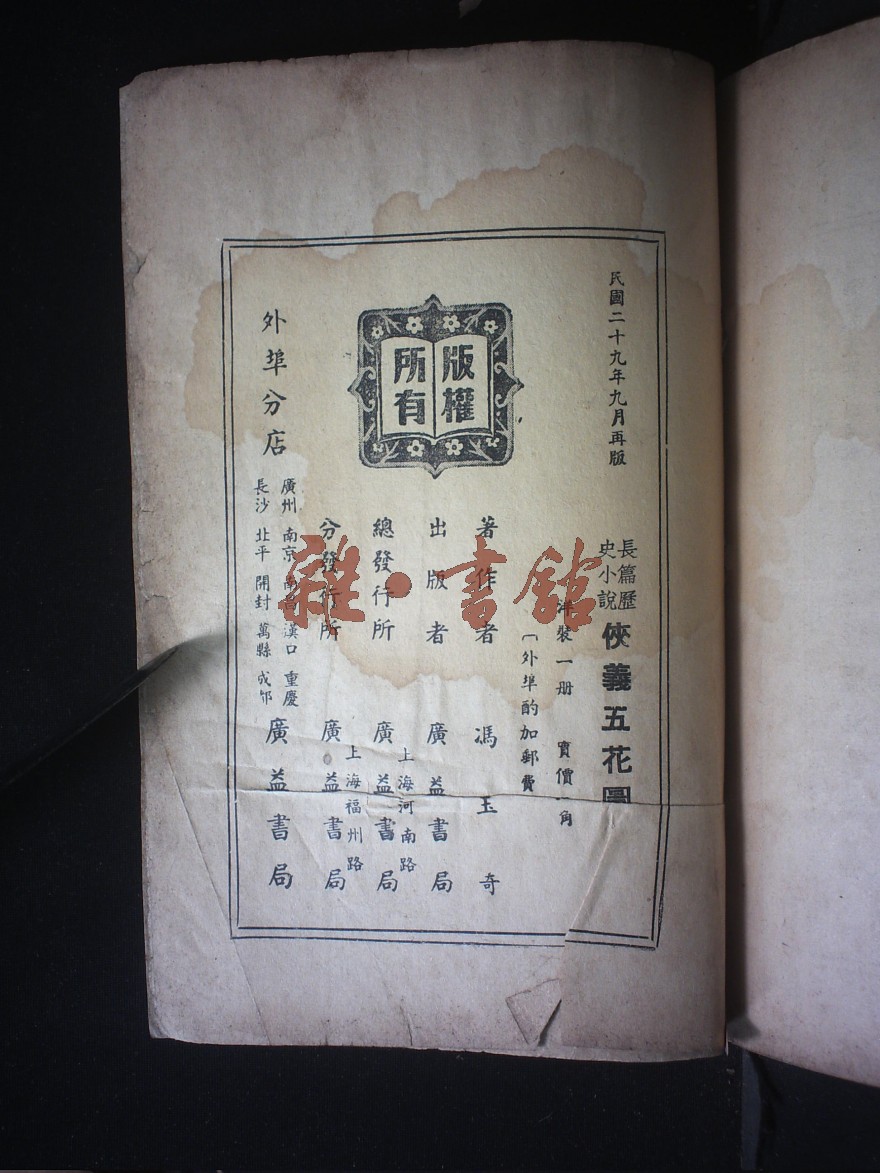 民國二十九年九月再版
長篇歷史小說
俠義五花圖
洋裝一册 實價 角
〔外埠酌加郵費
版權所有
著作者 馮玉奇
出版者 廣益書局
上海河南路
總發行所 廣益書局
上海福州路
分發行所 廣益書局
外埠分店
廣州 南京 南昌 漢口 重慶
長沙 北平 開封 萬縣 成都
廣益書局
雜·書館